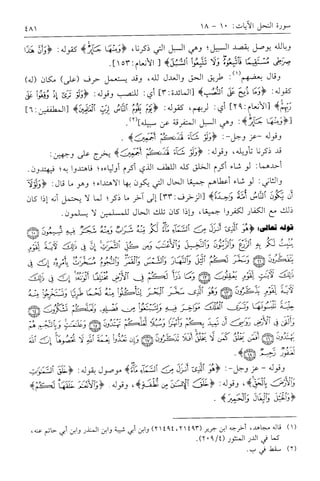 سورة النحل الآيات: ١٠ - ١٨
٤٨١
وبالله يوصل بقصد السبيل؛ وهي السبل التي ذكرنا، ﴿وَمِنْهَا جَآئِرٌ﴾ كقوله: ﴿وَأَنَّ هَٰذَا
صِرَٰطِى مُسْتَقِيمًا فَٱتَّبِعُوهُ وَلَا تَتَّبِعُوا۟ ٱلسُّبُلَ﴾ [الأنعام: ١٥٣].
وقال بعضهم(١): طريق الحق والعدل لله، وقد يستعمل حرف (على) مكان (له)
كقوله: ﴿وَمَا ذُبِحَ عَلَى ٱلنُّصُبِ﴾ [المائدة: ٣] أي: للنصب وقوله: ﴿وَلَوْ تَرَىٰٓ إِذْ وُقِفُوا۟ عَلَىٰ
رَبِّهِمْ﴾ [الأنعام: ٢٩] أي: لربهم، كقوله: ﴿يَوْمَ يَقُومُ ٱلنَّاسُ لِرَبِّ ٱلْعَٰلَمِينَ﴾ [المطففين: ٦]
[﴿وَمِنْهَا جَآئِرٌ﴾: وهي السبل المتفرقة عن سبيله](٢).
وقوله - عز وجل -: ﴿وَلَوْ شَآءَ لَهَدَىٰكُمْ أَجْمَعِينَ﴾.
قد ذكرنا تأويله، وقوله: ﴿وَلَوْ شَآءَ لَهَدَىٰكُمْ أَجْمَعِينَ﴾ يخرج على وجهين:
أحدهما: لو شاء أكرم الخلق كله اللطف الذي أكرم أولياءه؛ فاهتدوا به؛ فيهتدون.
والثاني: لو شاء أعطاهم جميعًا الحال التي يكون بها الاهتداء؛ وهو ما قال: ﴿وَلَوْلَآ
أَن يَكُونَ ٱلنَّاسُ أُمَّةً وَٰحِدَةً﴾ [الزخرف: ٣٣] إلى آخر ما ذكر؛ لما لا يحتمل أنه إذا كان
ذلك مع الكفار لكفروا جميعًا، وإذا كان تلك الحال للمسلمين لا يسلمون.
قوله تعالى: ﴿هُوَ ٱلَّذِىٓ أَنزَلَ مِنَ ٱلسَّمَآءِ مَآءً لَّكُم مِّنْهُ شَرَابٌ وَمِنْهُ شَجَرٌ فِيهِ تُسِيمُونَ ﴿١٠﴾
يُنۢبِتُ لَكُم بِهِ ٱلزَّرْعَ وَٱلزَّيْتُونَ وَٱلنَّخِيلَ وَٱلْأَعْنَٰبَ وَمِن كُلِّ ٱلثَّمَرَٰتِ إِنَّ فِى ذَٰلِكَ لَـَٔايَةً لِّقَوْمٍ
يَتَفَكَّرُونَ ﴿١١﴾ وَسَخَّرَ لَكُمُ ٱلَّيْلَ وَٱلنَّهَارَ وَٱلشَّمْسَ وَٱلْقَمَرَ وَٱلنُّجُومُ مُسَخَّرَٰتٌۢ بِأَمْرِهِۦٓ إِنَّ فِى ذَٰلِكَ
لَـَٔايَٰتٍ لِّقَوْمٍ يَعْقِلُونَ ﴿١٢﴾ وَمَا ذَرَأَ لَكُمْ فِى ٱلْأَرْضِ مُخْتَلِفًا أَلْوَٰنُهُۥٓ إِنَّ فِى ذَٰلِكَ
لَـَٔايَةً لِّقَوْمٍ يَذَّكَّرُونَ ﴿١٣﴾ وَهُوَ ٱلَّذِى سَخَّرَ ٱلْبَحْرَ لِتَأْكُلُوا۟ مِنْهُ لَحْمًا طَرِيًّا وَتَسْتَخْرِجُوا۟ مِنْهُ
حِلْيَةً تَلْبَسُونَهَا وَتَرَى ٱلْفُلْكَ مَوَاخِرَ فِيهِ وَلِتَبْتَغُوا۟ مِن فَضْلِهِۦ وَلَعَلَّكُمْ تَشْكُرُونَ ﴿١٤﴾
وَأَلْقَىٰ فِى ٱلْأَرْضِ رَوَٰسِىَ أَن تَمِيدَ بِكُمْ وَأَنْهَٰرًا وَسُبُلًا لَّعَلَّكُمْ تَهْتَدُونَ ﴿١٥﴾ وَعَلَٰمَٰتٍ وَبِٱلنَّجْمِ هُمْ
يَهْتَدُونَ ﴿١٦﴾ أَفَمَن يَخْلُقُ كَمَن لَّا يَخْلُقُ أَفَلَا تَذَكَّرُونَ ﴿١٧﴾ وَإِن تَعُدُّوا۟ نِعْمَةَ ٱللَّهِ لَا تُحْصُوهَآ إِنَّ ٱللَّهَ
لَغَفُورٌ رَّحِيمٌ ﴿١٨﴾﴾.
وقوله - عز وجل -: ﴿هُوَ ٱلَّذِىٓ أَنزَلَ مِنَ ٱلسَّمَآءِ مَآءً﴾ موصول بقوله: ﴿خَلَقَ ٱلسَّمَٰوَٰتِ
وَٱلْأَرْضَ بِٱلْحَقِّ﴾، وقوله: ﴿خَلَقَ ٱلْإِنسَٰنَ مِن نُّطْفَةٍ﴾، وقوله. ﴿وَٱلْأَنْعَٰمَ خَلَقَهَا لَكُمْ﴾
﴿وَٱلْخَيْلَ وَٱلْبِغَالَ وَٱلْحَمِيرَ﴾.
(١) قاله مجاهد، أخرجه ابن جرير (٢١٤٩٣، ٢١٤٩٤) وابن أبي شيبة وابن المنذر وابن أبي حاتم عنه،
كما في الدر المنثور (٢٠٩/٤).
(٢) سقط في ب.